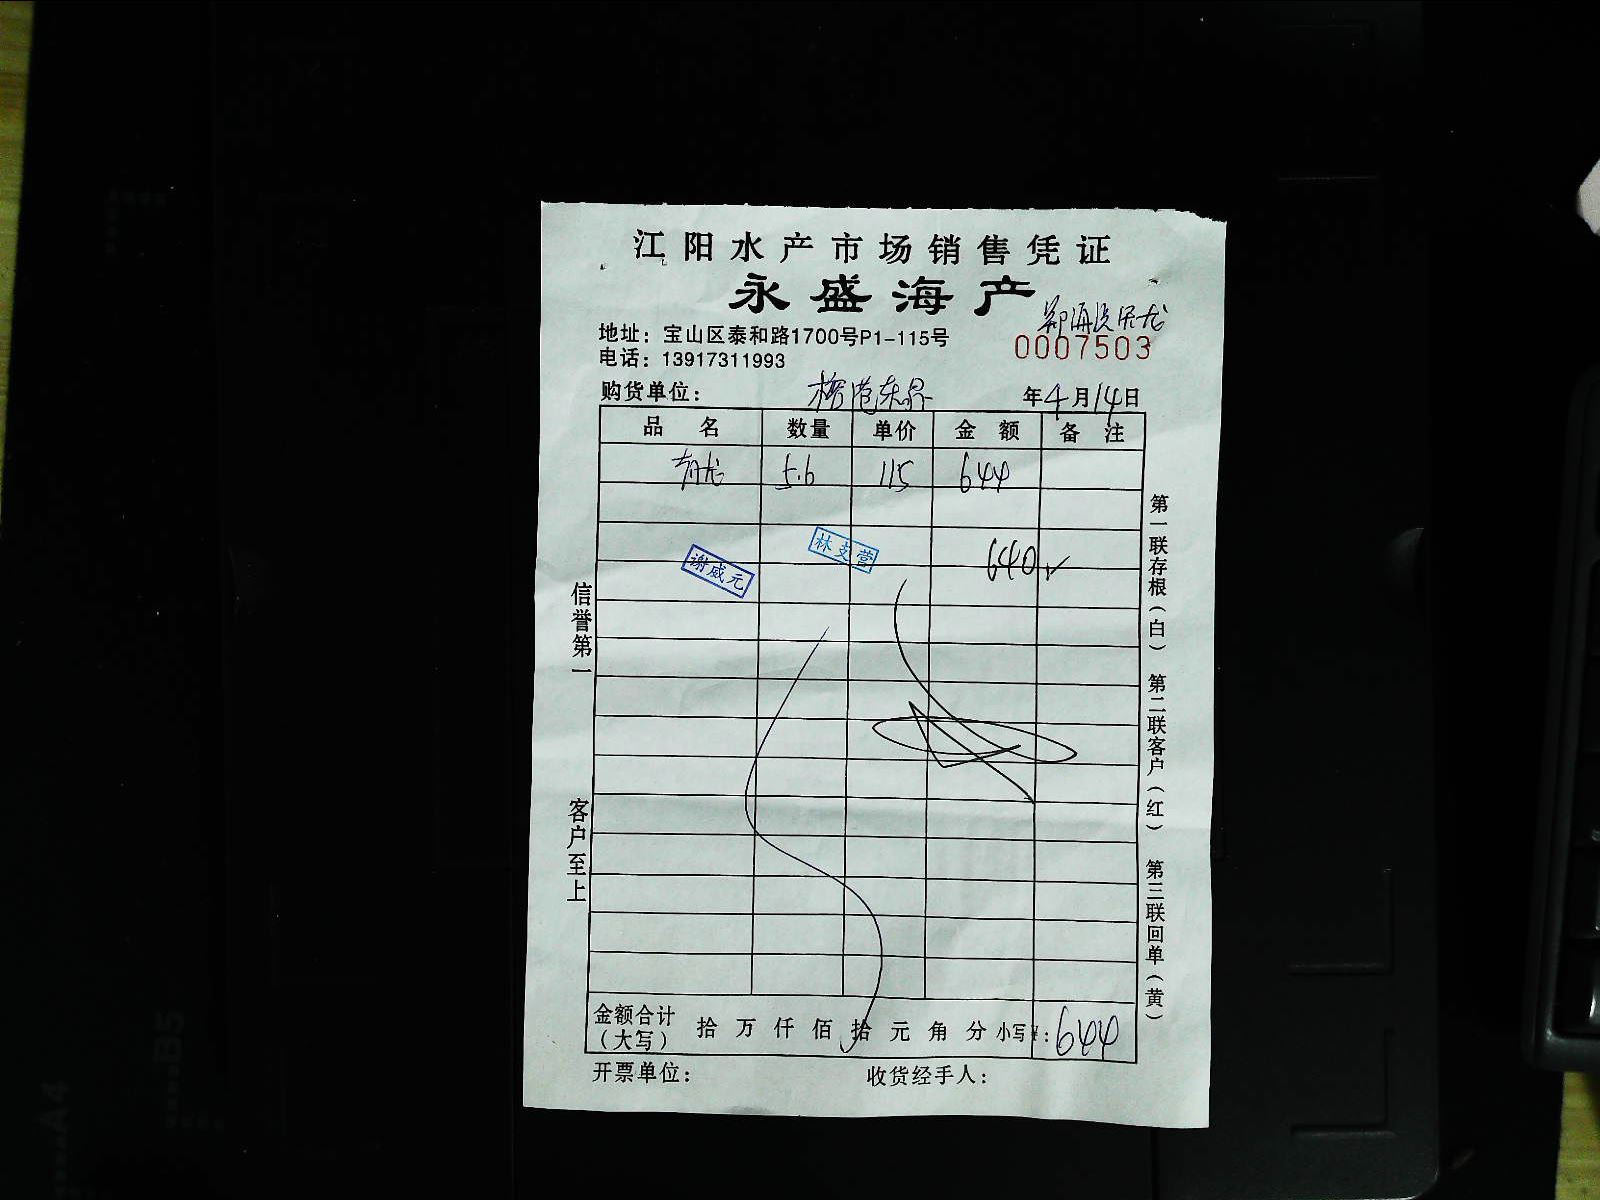 江阳水产市场销售凭证
永盛海产
地址：宝山区泰和路1700号P1-115号
0007503
电话：13917311993
购货单位： 年4月14日
品名 数量 单价 金额 备注
青龙 5.6 115 644
640
林支营
谢威元
信誉第一
客户至上
第一联存根（白） 第二联客户（红） 第三联回单（黄）
金额合计（大写） 拾 万 仟 佰 拾 元 角 分 小写¥：644
开票单位： 收货经手人：
A4
B5